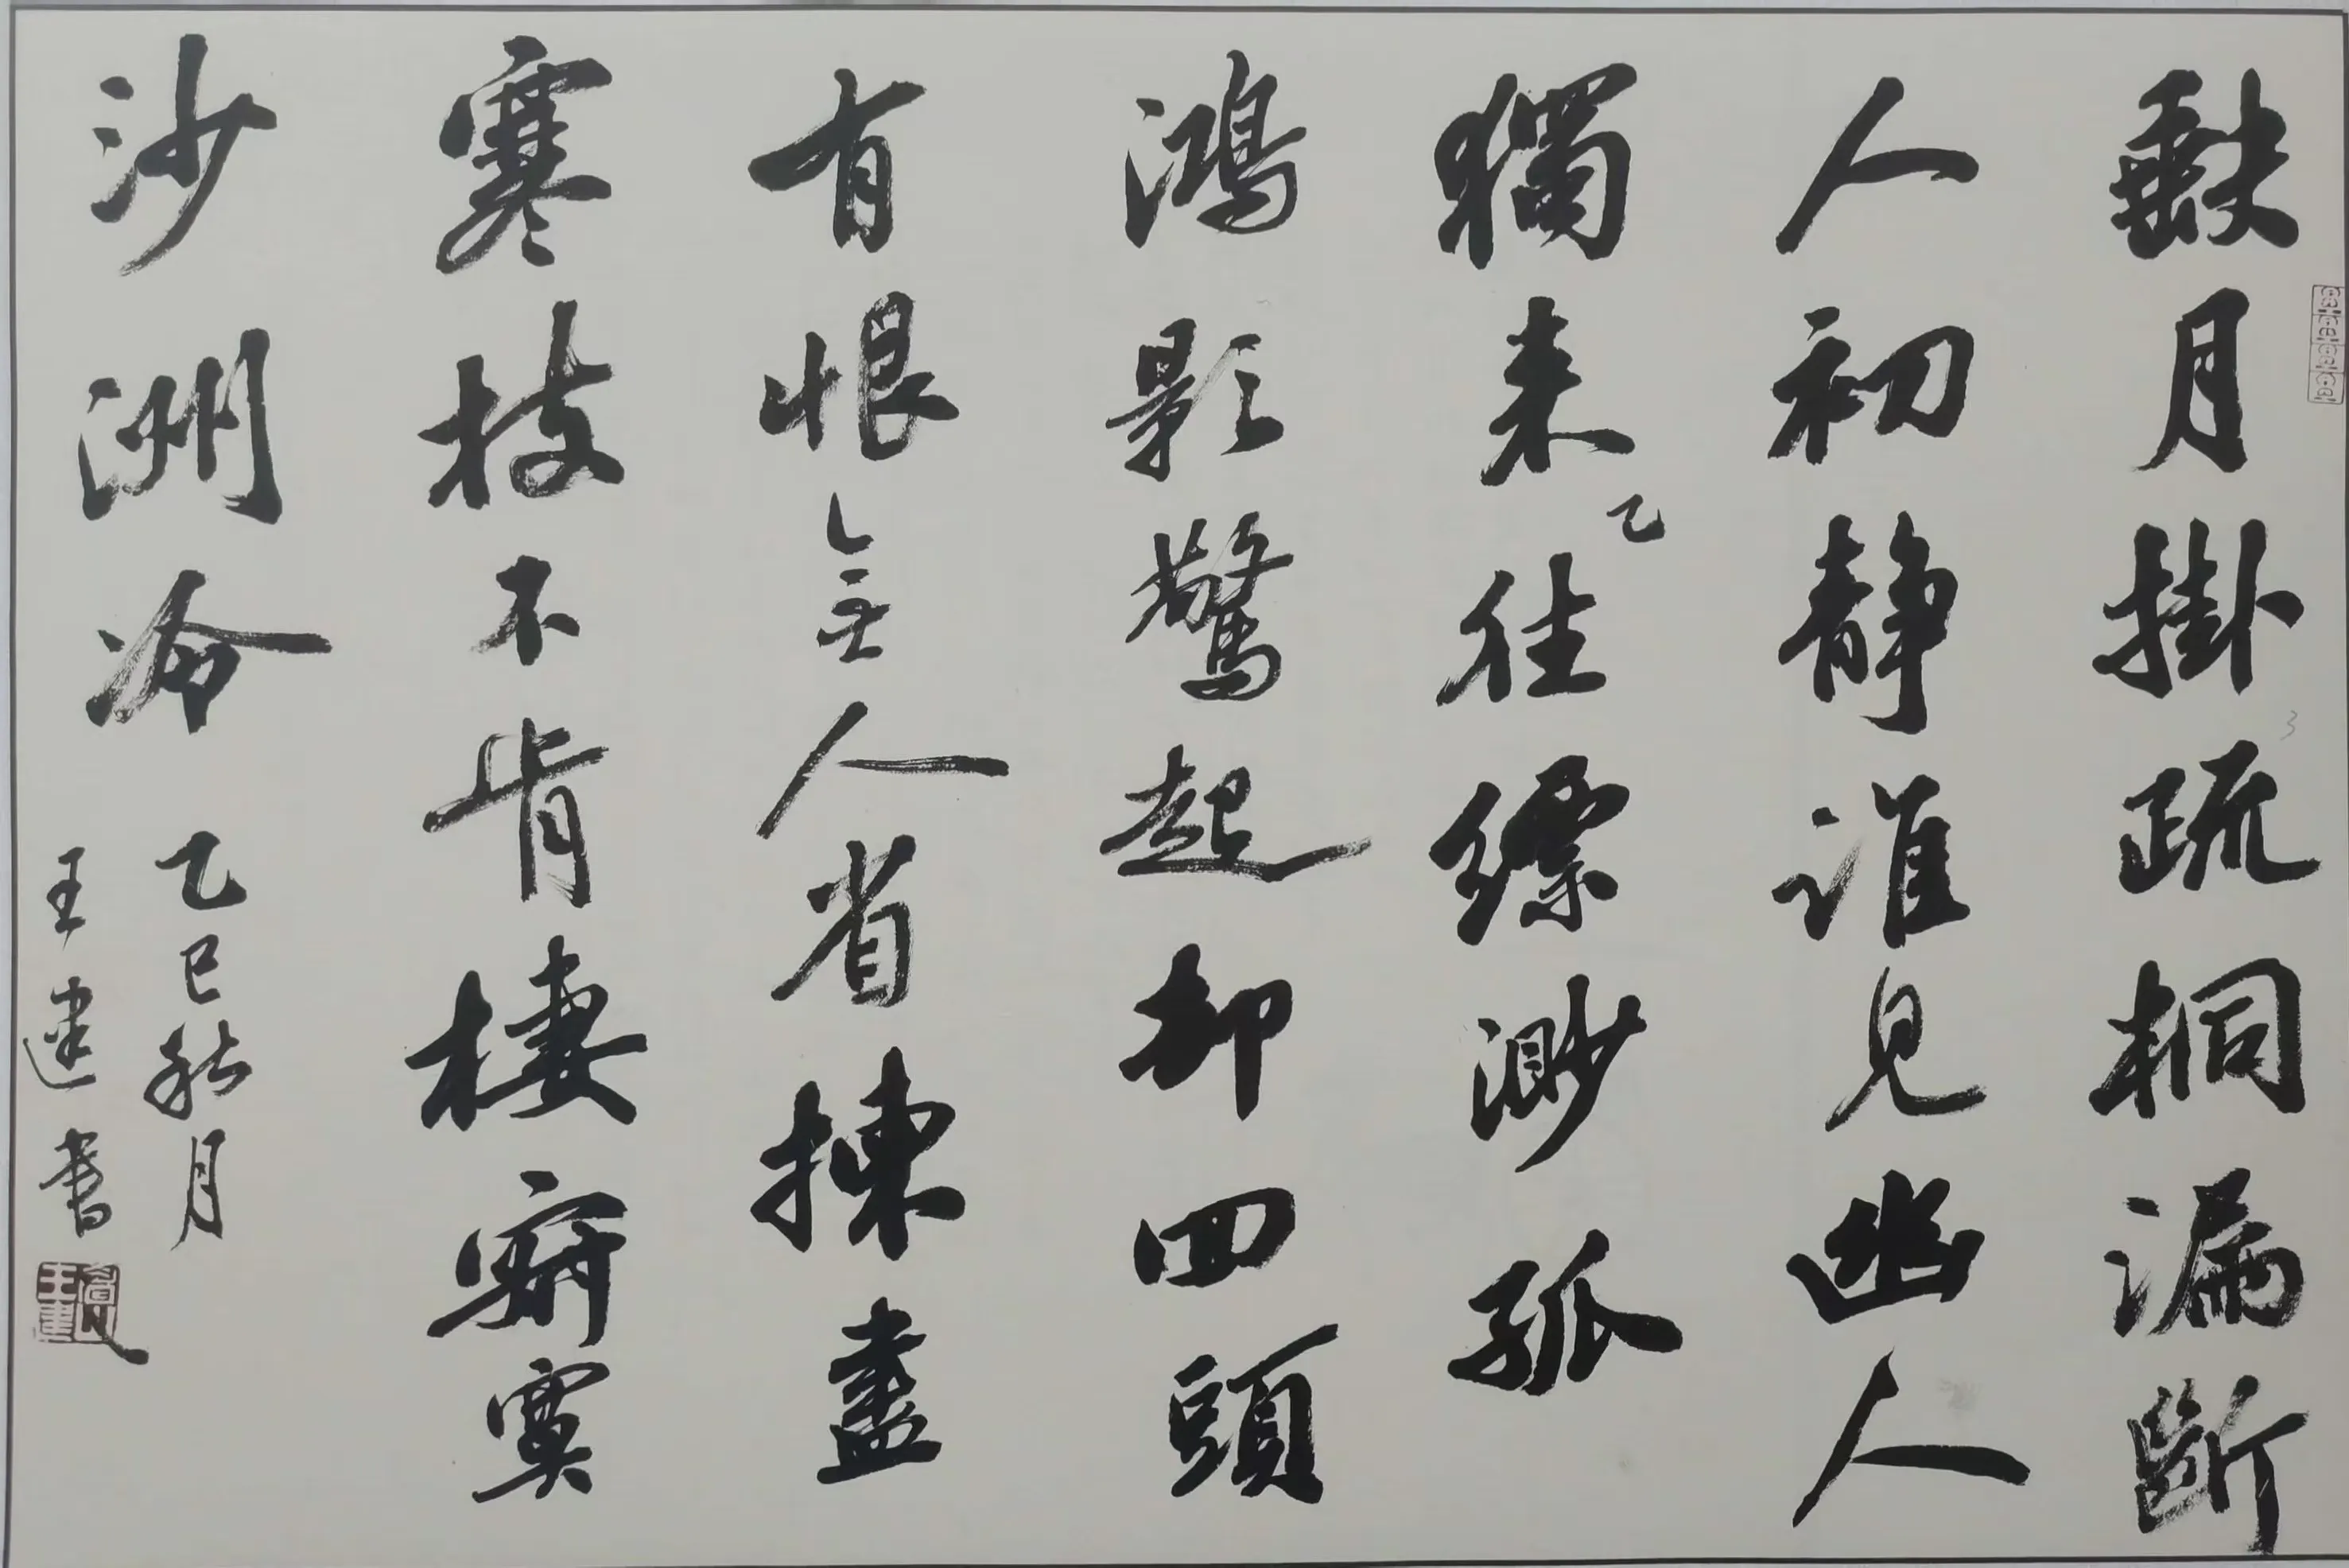 缺月掛疏桐漏斷
人初静誰見幽人
獨来乙往縹渺孤
鴻影驚起却回頭
有恨無人省揀盡
寒枝不肯棲寂寞
沙洲冷
乙巳秋月
王建書